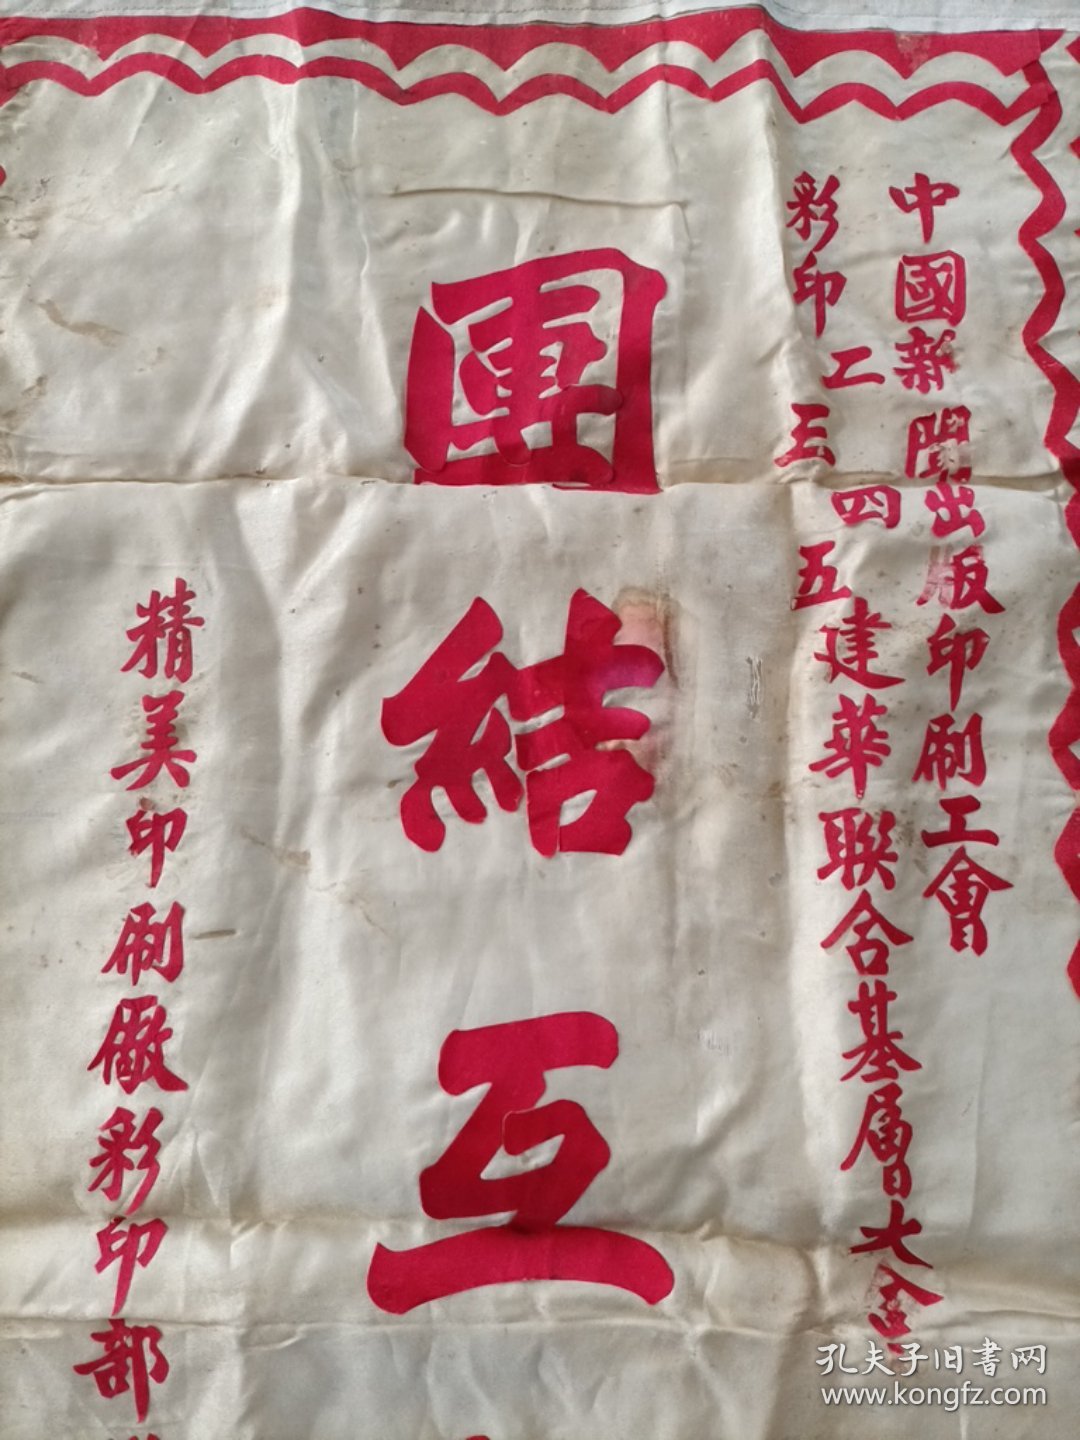 中國新聞出版印刷工會
彩印二三四五建華联合基層大會
團結互
精美印刷廠彩印部
孔夫子旧書网
www.kongfz.com